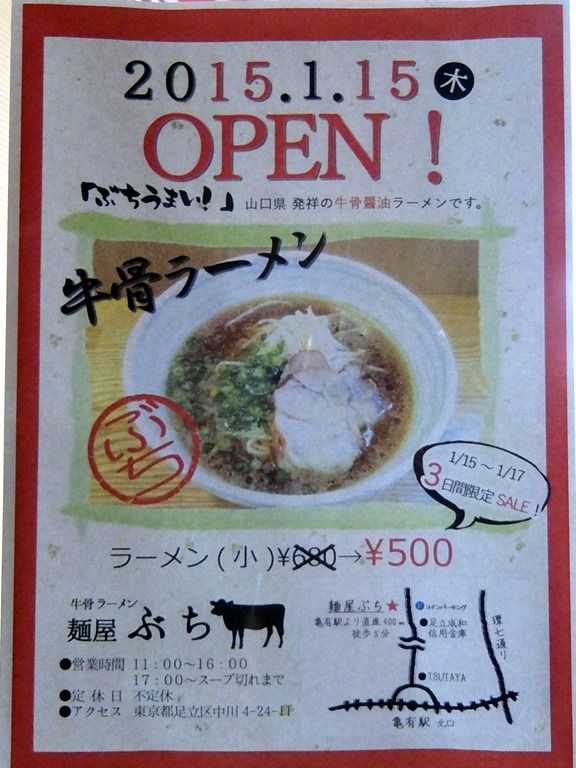 2015.1.15 木
OPEN！
「ぶちうまい！」山口県 発祥の牛骨醤油ラーメンです。
牛骨ラーメン
ぶち
1/15～1/17
3日間限定 SALE！
ラーメン(小)¥680→¥500
牛骨ラーメン
麺屋 ぶち
●営業時間 11：00～16：00
17：00～スープ切れまで
●定休日 不定休
●アクセス 東京都足立区中川4-24-11
麺屋ぶち★
亀有駅より直進400m
徒歩5分
P コインパーキング
●足立成和
信用金庫
環七通り
●TSUTAYA
亀有駅 北口